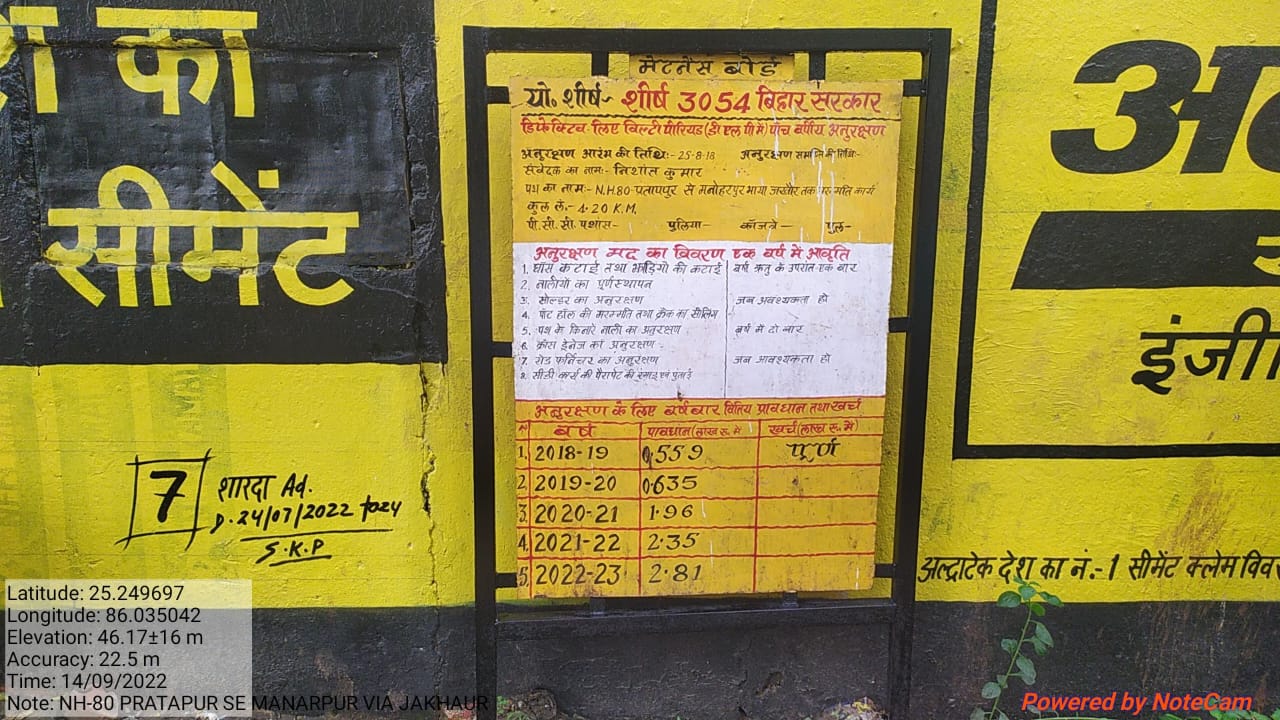 का
सीमेंट
7 शारदा Ad.
D. 24/07/2022 to 24
S.K.P
मेटनेंस बोर्ड
यो. शीर्ष- शीर्ष 3054 बिहार सरकार
डिफेक्टिव लिए बिल्टी पीरियड (डी एल पी में) पांच वर्षीय अनुरक्षण
अनुरक्षण आरंभ की तिथि:- 25-8-18 अनुरक्षण समाप्ति की तिथि:-
संवेदक का नाम:- निशांत कुमार
पथ का नाम:- N.H.80 प्रतापपुर से मनोहरपुर भाया जखौर तक मरम्मति कार्य
कुल ल.- 4.20 K.M.
पी. सी. सी. पथांस- पुलिया- कॉजवे- पुल-
अनुरक्षण मद का विवरण एक वर्ष में आवृति
1. घांस कटाई तथा झाड़ियो की कटाई वर्षा ऋतु के उपरांत एक बार
2. नालीयों का पूर्णस्थापन
3. सोल्डर का अनुरक्षण जब अवश्यकता हो
4. पॉट हॉल की मरम्मति तथा क्रैक का सीलिंग
5. पथ के किनारे नाली का अनुरक्षण वर्ष में दो बार
6. क्रॉस ड्रेनेज का अनुरक्षण -
7. रोड फर्निचर का अनुरक्षण जब आवश्यकता हो
8. सीडी कार्य की पैरापेट की रंगाई एवं पुताई
अनुरक्षण के लिए वर्षवार वित्तिय प्रावधान तथा खर्च
वर्ष प्रावधान (लाख रु. में खर्च (लाख रु. में)
1. 2018-19 0.559 पूर्ण
2. 2019-20 0.635
3. 2020-21 1.96
4. 2021-22 2.35
5. 2022-23 2.81
इंजी
अल्ट्राटेक देश का नं.-1 सीमेंट क्लेम विव
Latitude: 25.249697
Longitude: 86.035042
Elevation: 46.17±16 m
Accuracy: 22.5 m
Time: 14/09/2022
Note: NH-80 PRATAPUR SE MANARPUR VIA JAKHAUR
Powered by NoteCam